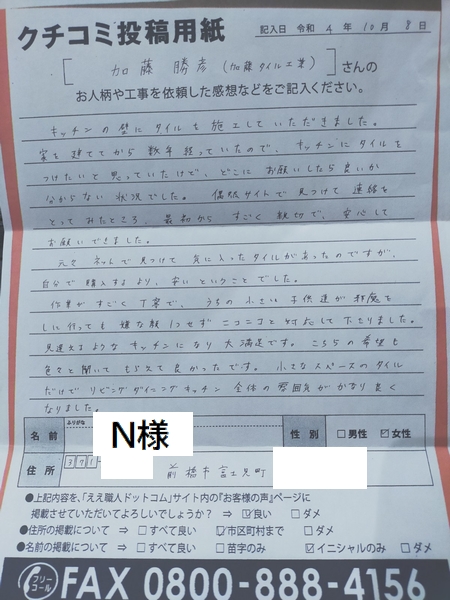 クチコミ投稿用紙
記入日 令和 4 年 10 月 8 日
[ 加藤 勝彦 (加藤タイル工業) ] さんの
お人柄や工事を依頼した感想などをご記入ください。
キッチンの壁にタイルを施工していただきました。
家を建ててから数年経っていたので、キッチンにタイルを
つけたいと思っていたけど、どこにお願いしたら良いか
わからない状況でした。偶然サイトで見つけて連絡を
とってみたところ、最初からすごく親切で、安心して
お願いできました。
元々ネットで見つけて気に入ったタイルがあったのですが、
自分で購入するより、安いということでした。
作業がすごく丁寧で、うちの小さい子供達が邪魔を
しに行っても嫌な顔1つせずニコニコと対応して下さりました。
見違えるようなキッチンになり大満足です。こちらの希望も
色々と聞いてもらえて良かったです。小さなスペースのタイル
だけでリビングダイニングキッチン全体の雰囲気がかなり良く
なりました。
ふりがな
名前 N様 性別 □男性 ☑女性
住所 371- 前橋市富士見町
●上記内容を、「ええ職人ドットコム」サイト内の『お客様の声』ページに
掲載させていただいてよろしいでしょうか？ ⇒ ☑良い □ダメ
●住所の掲載について ⇒ □すべて良い ☑市区町村まで □ダメ
●名前の掲載について ⇒ □すべて良い □苗字のみ ☑イニシャルのみ □ダメ
フリーコール FAX 0800-888-4156